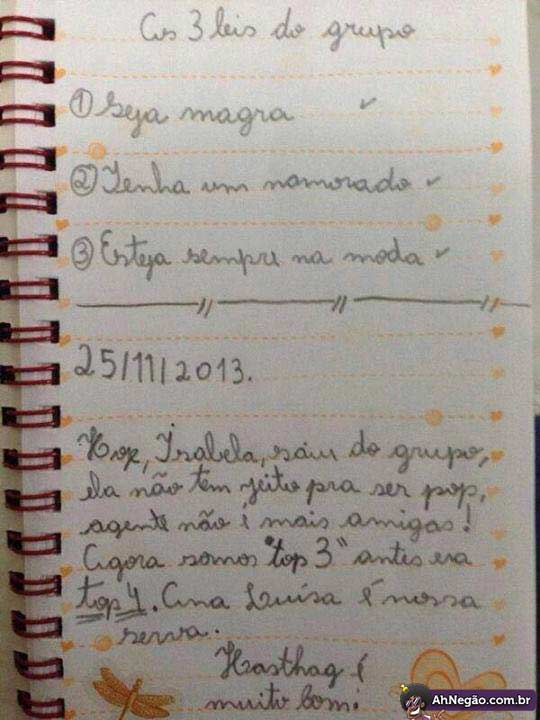 As 3 leis do grupo
① Seja magra ✓
② Tenha um namorado ✓
③ Esteja sempre na moda ✓
25/11/2013.
Hoje, Isabela, saiu do grupo,
ela não tem jeito pra ser pop,
agente não é mais amigas!
Agora somos "top 3" antes era
top 4. Ana Luísa é nossa
serva.
Hasthag é
muito bom!
AhNegão.com.br